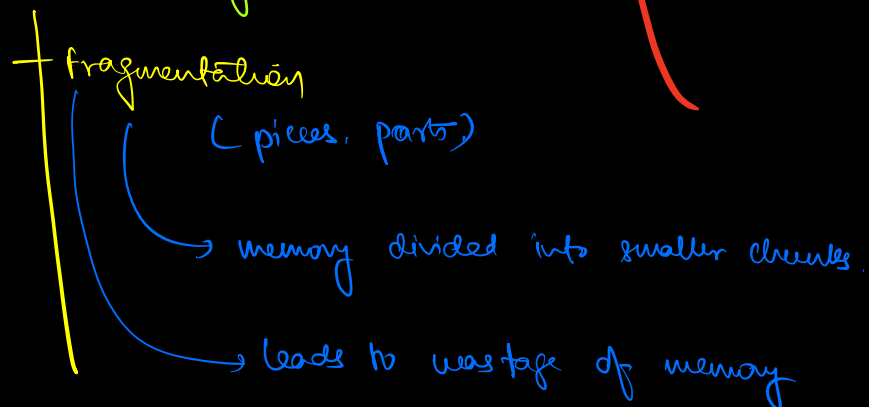 Fragmentation
(pieces, parts)
memory divided into smaller chunks.
leads to wastage of memory